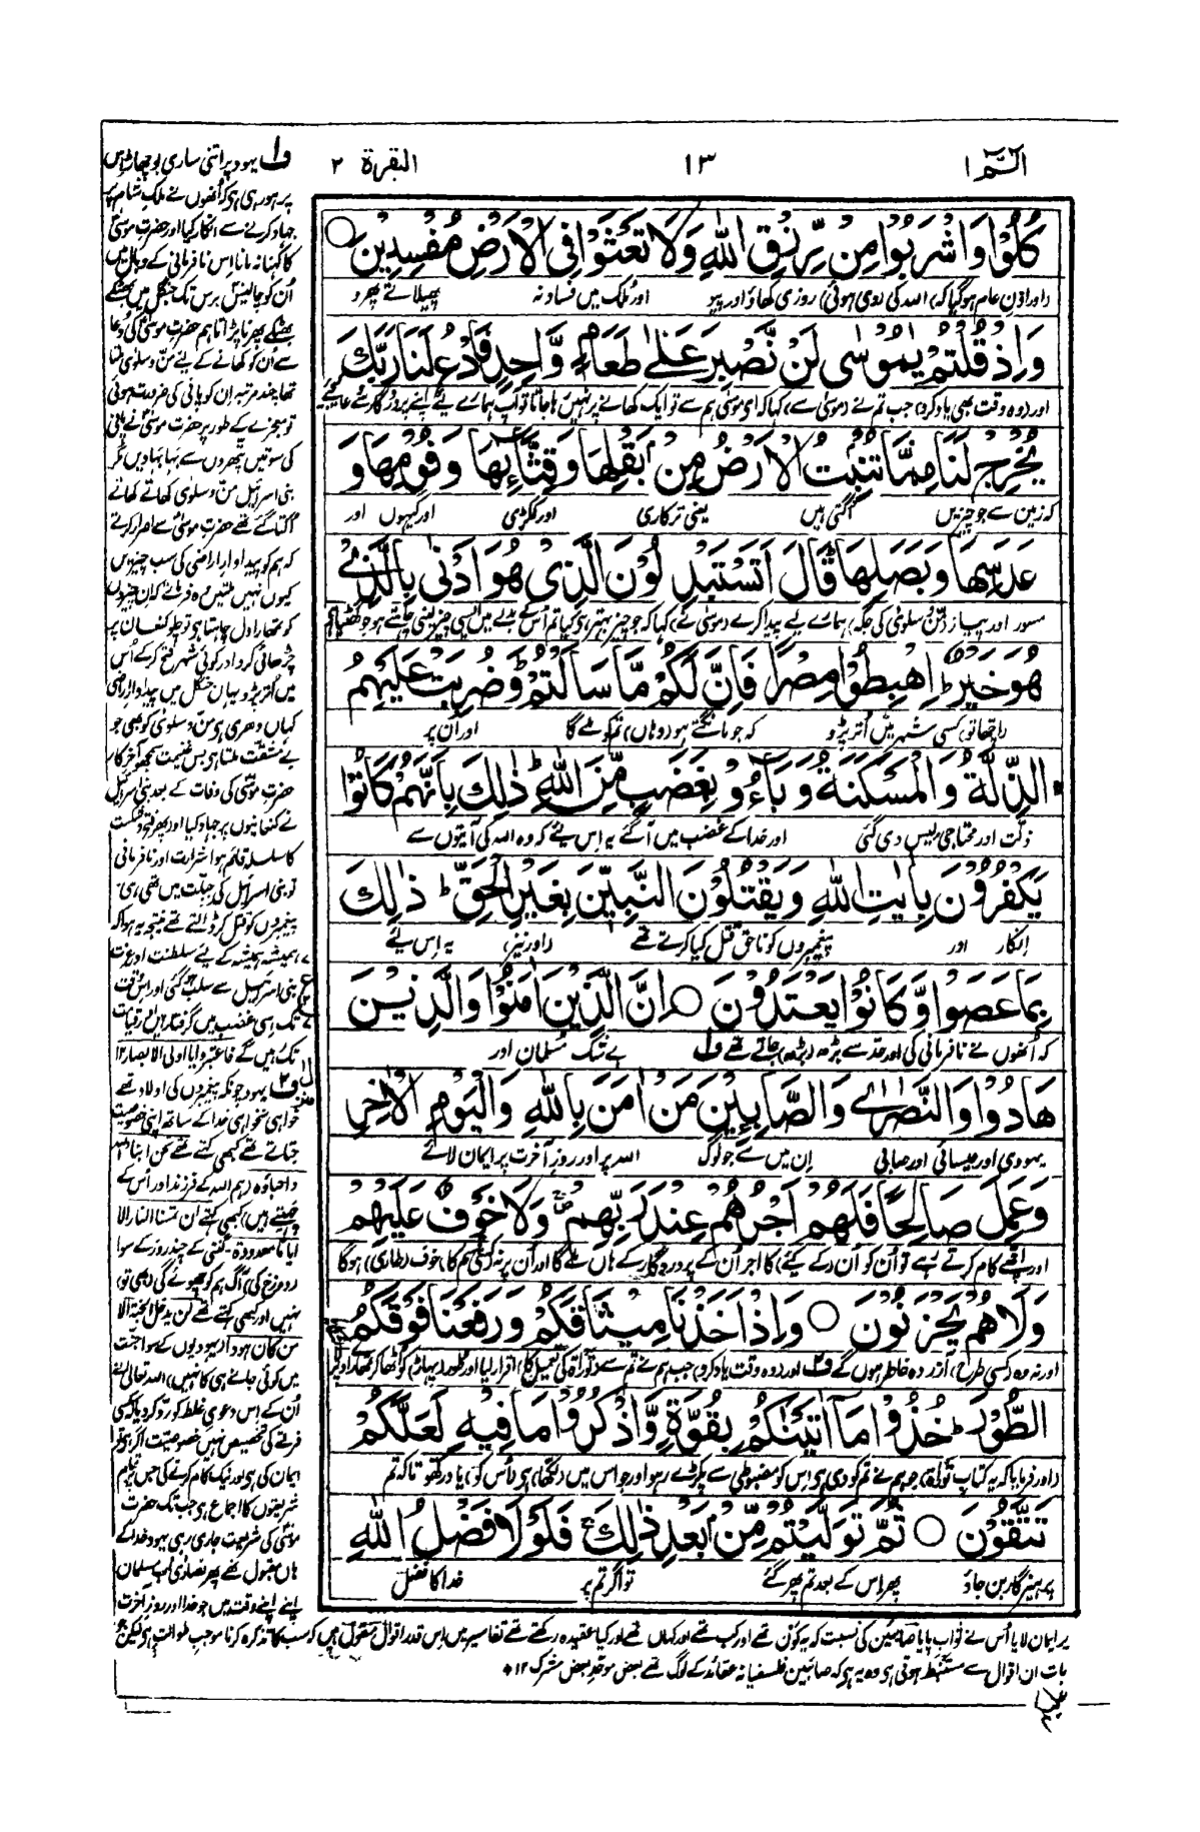 الٓمّٓ ١
١٣
البقرة ٢
كُلُوْا وَاشْرَبُوْا مِنْ رِّزْقِ اللّٰهِ وَلَا تَعْثَوْا فِى الْاَرْضِ مُفْسِدِيْنَ ○
(اور اذن عام ہوگیا کہ) اللہ کی (دی ہوئی) روزی کھاؤ اور پیو اور ملک میں فساد نہ پھیلاتے پھرو
وَاِذْ قُلْتُمْ يٰمُوْسٰى لَنْ نَّصْبِرَ عَلٰى طَعَامٍ وَّاحِدٍ فَادْعُ لَنَا رَبَّكَ
اور (وہ وقت بھی یاد کرو) جب تم نے (موسیٰ سے) کہا کہ ای موسیٰ ہم سے تو ایک کھانے پر نہیں رہا جاتا تو آپ ہمارے لیے اپنے پروردگار سے دعا کیجیے
يُخْرِجْ لَنَا مِمَّا تُنْبِتُ الْاَرْضُ مِنْۢ بَقْلِهَا وَقِثَّآئِهَا وَفُوْمِهَا وَ
کہ زمین سے جو چیزیں اگتی ہیں یعنی ترکاری اور ککڑی اور گیہوں اور
عَدَسِهَا وَبَصَلِهَا ؕ قَالَ اَتَسْتَبْدِلُوْنَ الَّذِىْ هُوَ اَدْنٰى بِالَّذِىْ
مسور اور پیاز (من و سلویٰ کی جگہ) ہمارے لیے پیدا کرے (موسیٰ نے) کہا کہ جو چیز بہتر ہی کیا تم اُس کے بدلے میں ایسی چیز لینی چاہتے ہو جو گھٹیا ہی
هُوَ خَيْرٌ ؕ اِهْبِطُوْا مِصْرًا فَاِنَّ لَكُمْ مَّا سَاَلْتُمْ ؕ وَضُرِبَتْ عَلَيْهِمُ
(اچھا تو) کسی شہر میں اُتر پڑو کہ جو مانگتے ہو (وہاں) تم کو ملے گا اور اُن پر
الذِّلَّةُ وَالْمَسْكَنَةُ وَبَآءُوْ بِغَضَبٍ مِّنَ اللّٰهِ ؕ ذٰلِكَ بِاَنَّهُمْ كَانُوْا
ذلت اور محتاجی لیس دی گئی اور خدا کے غضب میں آ گئے یہ اس لیے کہ وہ اللہ کی آیتوں سے
يَكْفُرُوْنَ بِاٰيٰتِ اللّٰهِ وَيَقْتُلُوْنَ النَّبِيّٖنَ بِغَيْرِ الْحَقِّ ؕ ذٰلِكَ
انکار اور پیغمبروں کو ناحق قتل کیا کرتے تھے (اور نیز) یہ اِس لیے
بِمَا عَصَوْا وَّكَانُوْا يَعْتَدُوْنَ ○ اِنَّ الَّذِيْنَ اٰمَنُوْا وَالَّذِيْنَ
کہ اُنھوں نے نافرمانی کی اور حد سے بڑھ (بڑھ) جاتے تھے ف۱ بے شک مسلمان اور
هَادُوْا وَالنَّصٰرٰى وَالصَّابِئِيْنَ مَنْ اٰمَنَ بِاللّٰهِ وَالْيَوْمِ الْاٰخِرِ
یہودی اور عیسائی اور صابی اِن میں سے جو لوگ اللہ پر اور روز آخرت پر ایمان لائے
وَعَمِلَ صَالِحًا فَلَهُمْ اَجْرُهُمْ عِنْدَ رَبِّهِمْ ۚ وَلَا خَوْفٌ عَلَيْهِمْ
اور اچھے کام کرتے رہے تو اُن کو اُن (کے کیے) کا اجر اُن کے پروردگار کے ہاں ملے گا اور اُن پر نہ کسی قسم کا) خوف (طاری) ہوگا
وَلَا هُمْ يَحْزَنُوْنَ ○ وَاِذْ اَخَذْنَا مِيْثَاقَكُمْ وَرَفَعْنَا فَوْقَكُمُ
اور نہ وہ (کسی طرح) آزردہ خاطر ہوں گے ف۲ اور (وہ وقت یاد کرو) جب ہم نے تم سے (توراۃ کی تعمیل کا) اقرار لیا اور طور (پہاڑ) کو اُٹھا کر تمھارے اوپر
الطُّوْرَ ؕ خُذُوْا مَآ اٰتَيْنٰكُمْ بِقُوَّةٍ وَّاذْكُرُوْا مَا فِيْهِ لَعَلَّكُمْ
(اور فرمایا کہ یہ کتاب توراۃ) جو ہم نے تم کو دی ہی اِس کو مضبوطی سے پکڑے رہو اور جو اس میں (لکھا) ہی (اُس کو) یاد رکھو تاکہ تم
تَتَّقُوْنَ ○ ثُمَّ تَوَلَّيْتُمْ مِّنْۢ بَعْدِ ذٰلِكَ ۚ فَلَوْلَا فَضْلُ اللّٰهِ
پرہیزگار بن جاؤ پھر اِس کے بعد تم پھر گئے تو اگر تم پر خدا کا فضل
ف۱ یہود پر اتنی ساری بوچھاڑ اِس
پر ہو رہی ہی کہ اُنھوں نے ملک شام پر
جہاد کرنے سے انکار کیا اور حضرت موسیٰ
کا کہنا نہ مانا اِس نافرمانی کے وبال میں
اُن کو چالیس برس تک جنگل میں بھٹکے
بھٹکے پھرنا پڑا تاہم حضرت موسیٰ کی دعا
سے اُن کو کھانے کے لیے من و سلویٰ ملتا
تھا چند مرتبہ اِن کو پانی کی ضرورت ہوئی
تو معجزے کے طور پر حضرت موسیٰ نے پانی
کی سوتیں پتھروں سے بہا بہا دیں مگر
بنی اسرائیل من و سلویٰ کھاتے کھاتے
اُکتا گئے تھے حضرت موسیٰ سے اصرار کرتے
کہ ہم کو پیداوار اراضی کی سب چیزیں
کیوں نہیں ملتیں وہ فرماتے کہ اِن چیزوں
کو تمھارا دل چاہتا ہی تو چلو کنعان پر
چڑھائی کرو اور کوئی شہر فتح کر کے اُس
میں اُتر پڑو یہاں جنگل میں پیداوار اراضی
کہاں دھری ہی من و سلویٰ کو بھی جو
بے مشقت ملتا ہی بس غنیمت سمجھو آخر کار
حضرت موسیٰ کی وفات کے بعد بنی اسرائیل
نے کنعانیوں پر جہاد کیا اور پھر فتح و شکست
کا سلسلہ قائم ہوا شرارت اور نافرمانی
تو بنی اسرائیل کی جبلت میں تھی ہی
پیغمبروں کو قتل کر ڈالتے تھے نتیجہ یہ ہوا کہ
ہمیشہ ہمیشہ کے لیے سلطنت اور عزت
بنی اسرائیل سے سلب ہو گئی اور اس وقت
تک اِسی غضب میں گرفتار ہیں اور قیامت
تک رہیں گے فاعتبروا یا اولی الابصار ۱۲
ف۲ یہود چونکہ پیغمبروں کی اولاد تھے
خواہی نخواہی خدا کے ساتھ اپنی خصوصیت
جتاتے تھے کبھی کہتے تھے نحن ابناء اللہ
واحباؤہ (ہم اللہ کے فرزند اور اُس کے
چہیتے ہیں) کبھی کہتے لن تمسنا النار الا
ایاما معدودۃ - گنتی کے چند روز کے سوا
(دوزخ کی) آگ ہم کو چھوئے گی (بھی تو)
نہیں اور کبھی کہتے تھے لن یدخل الجنۃ الا
من کان ھودا (یہودیوں کے سوا جنت
میں کوئی جانے ہی کا نہیں) اللہ تعالیٰ نے
اُن کے اِس دعوی غلط کو رد کر دیا کہ کسی
فرقے کی تخصیص نہیں خصوصیت اگر ہی تو
ایمان کی ہی اور نیک کام کرنے کی جس پر تمام
شریعتوں کا اجماع ہی جب تک حضرت
موسیٰ کی شریعت جاری رہی یہود خدا کے
ہاں مقبول تھے پھر نصاریٰ اب مسلمان
اپنے اپنے وقت میں جو خدا اور روز آخرت
پر ایمان لایا اُس نے ثواب پایا صابئین کی نسبت کہ یہ کون تھے اور کب تھے اور کہاں تھے اور کیا عقیدہ رکھتے تھے تفاسیر میں اِس قدر اقوال منقول ہیں کہ سب کا تذکرہ کرنا موجب طوالت ہی لیکن جو
بات ان اقوال سے مستنبط ہوتی ہی وہ یہ ہی کہ صابئین فلسفیانہ عقائد کے لوگ تھے بعض موحد بعض مشرک ۱۲